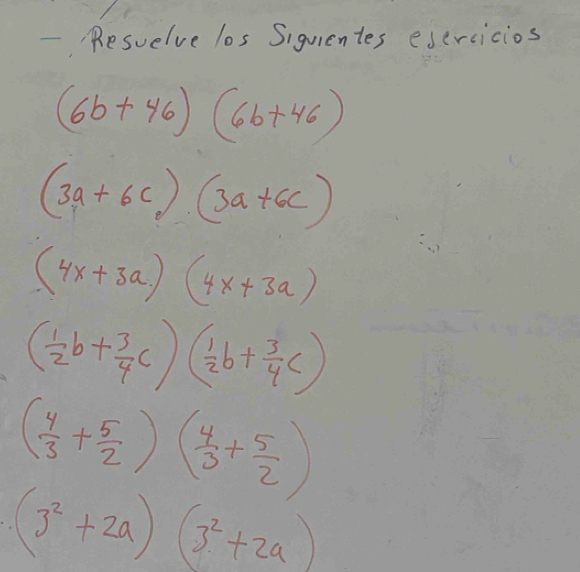 - Resuelve los Siguientes ejercicios
(6b + 46) (6b + 46)
(3a + 6c) (3a + 6c)
(4x + 3a) (4x + 3a)
(1/2 b + 3/4 c) (1/2 b + 3/4 c)
(4/3 + 5/2) (4/3 + 5/2)
(3² + 2a) (3² + 2a)